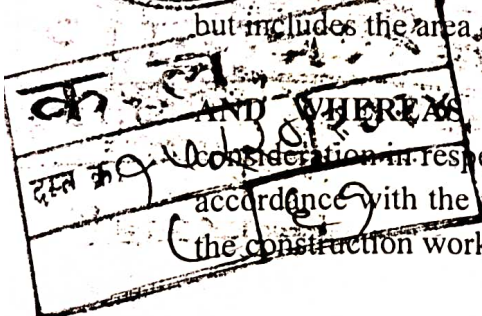 but includes the area
क ल न
AND WHEREAS
दस्त क्र
consideration in respe
accordance with the
the construction work